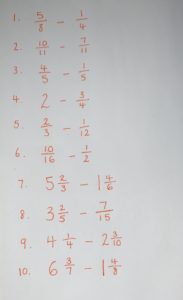 1. 5/8 − 1/4
2. 10/11 − 7/11
3. 4/5 − 1/5
4. 2 − 3/4
5. 2/3 − 1/12
6. 10/16 − 1/2
7. 5 2/3 − 1 4/6
8. 3 2/5 − 7/15
9. 4 1/4 − 2 3/10
10. 6 3/7 − 1 4/8